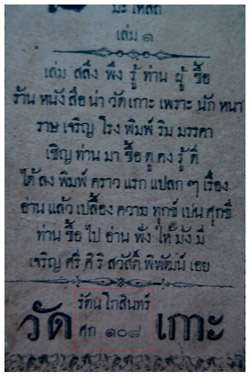 มะเหลลี
เล่ม ๑
เล่ม สลึง พึง รู้ ท่าน ผู้ ซื้อ
ร้าน หนัง สือ น่า วัด เกาะ เพราะ นัก หนา
ราษ เจริญ โรง พิมพ์ ริม มรรคา
เชิญ ท่าน มา ซื้อ ดู คง รู้ ดี
ได้ ลง พิมพ์ คราว แรก แปลก ๆ เรื่อง
อ่าน แล้ว เปลื้อง ความ ทุกข์ เปน ศุกขี
ท่าน ซื้อ ไป อ่าน ฟัง ให้ มั่ง มี
เจริญ ศรี ศิริ สวัสดิ์ พิพัฒน์ เอย
รัตนโกสินทร์
วัด ศก ๑๐๘ เกาะ